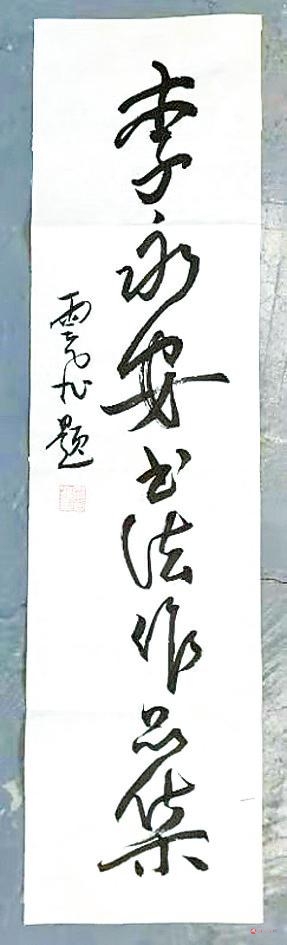 李永安书法作品集
雲龙题